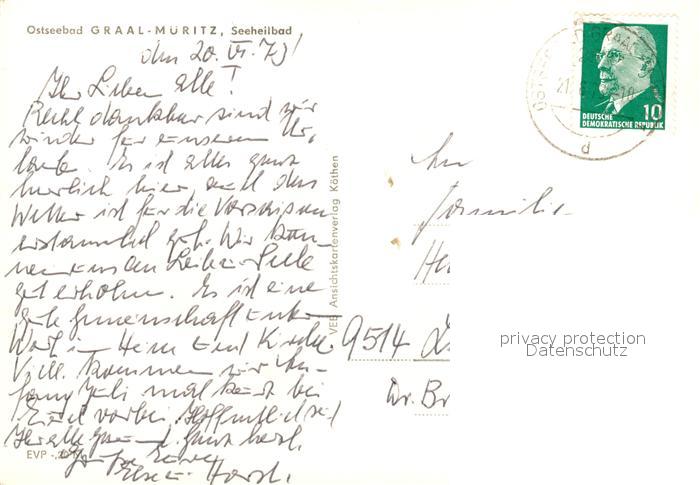 Ostseebad GRAAL-MÜRITZ, Seeheilbad
den 20. VI. 79!
Ihr Lieben alle!
Recht dankbar sind wir
wieder für unseren Ur-
laub. Es ist alles ganz
herrlich hier, auch das
Wetter ist für die
erstaunlich gut. Wir kön-
nen uns an Leib u. Seele
gut erholen. Es ist eine
gute Gemeinschaft unter
Wort in Heim und Kirche.
Viell. kommen wir An-
fang Juli mal kurz bei
Euch vorbei. Hoffentlich seid
Ihr alle gesund. Ganz herzl.
Eure
Horst.
EVP -,20
VEB Ansichtskartenverlag Köthen
DEUTSCHE
DEMOKRATISCHE REPUBLIK
10
d
An
Familie
He
9514
Dr. Br
privacy protection
Datenschutz